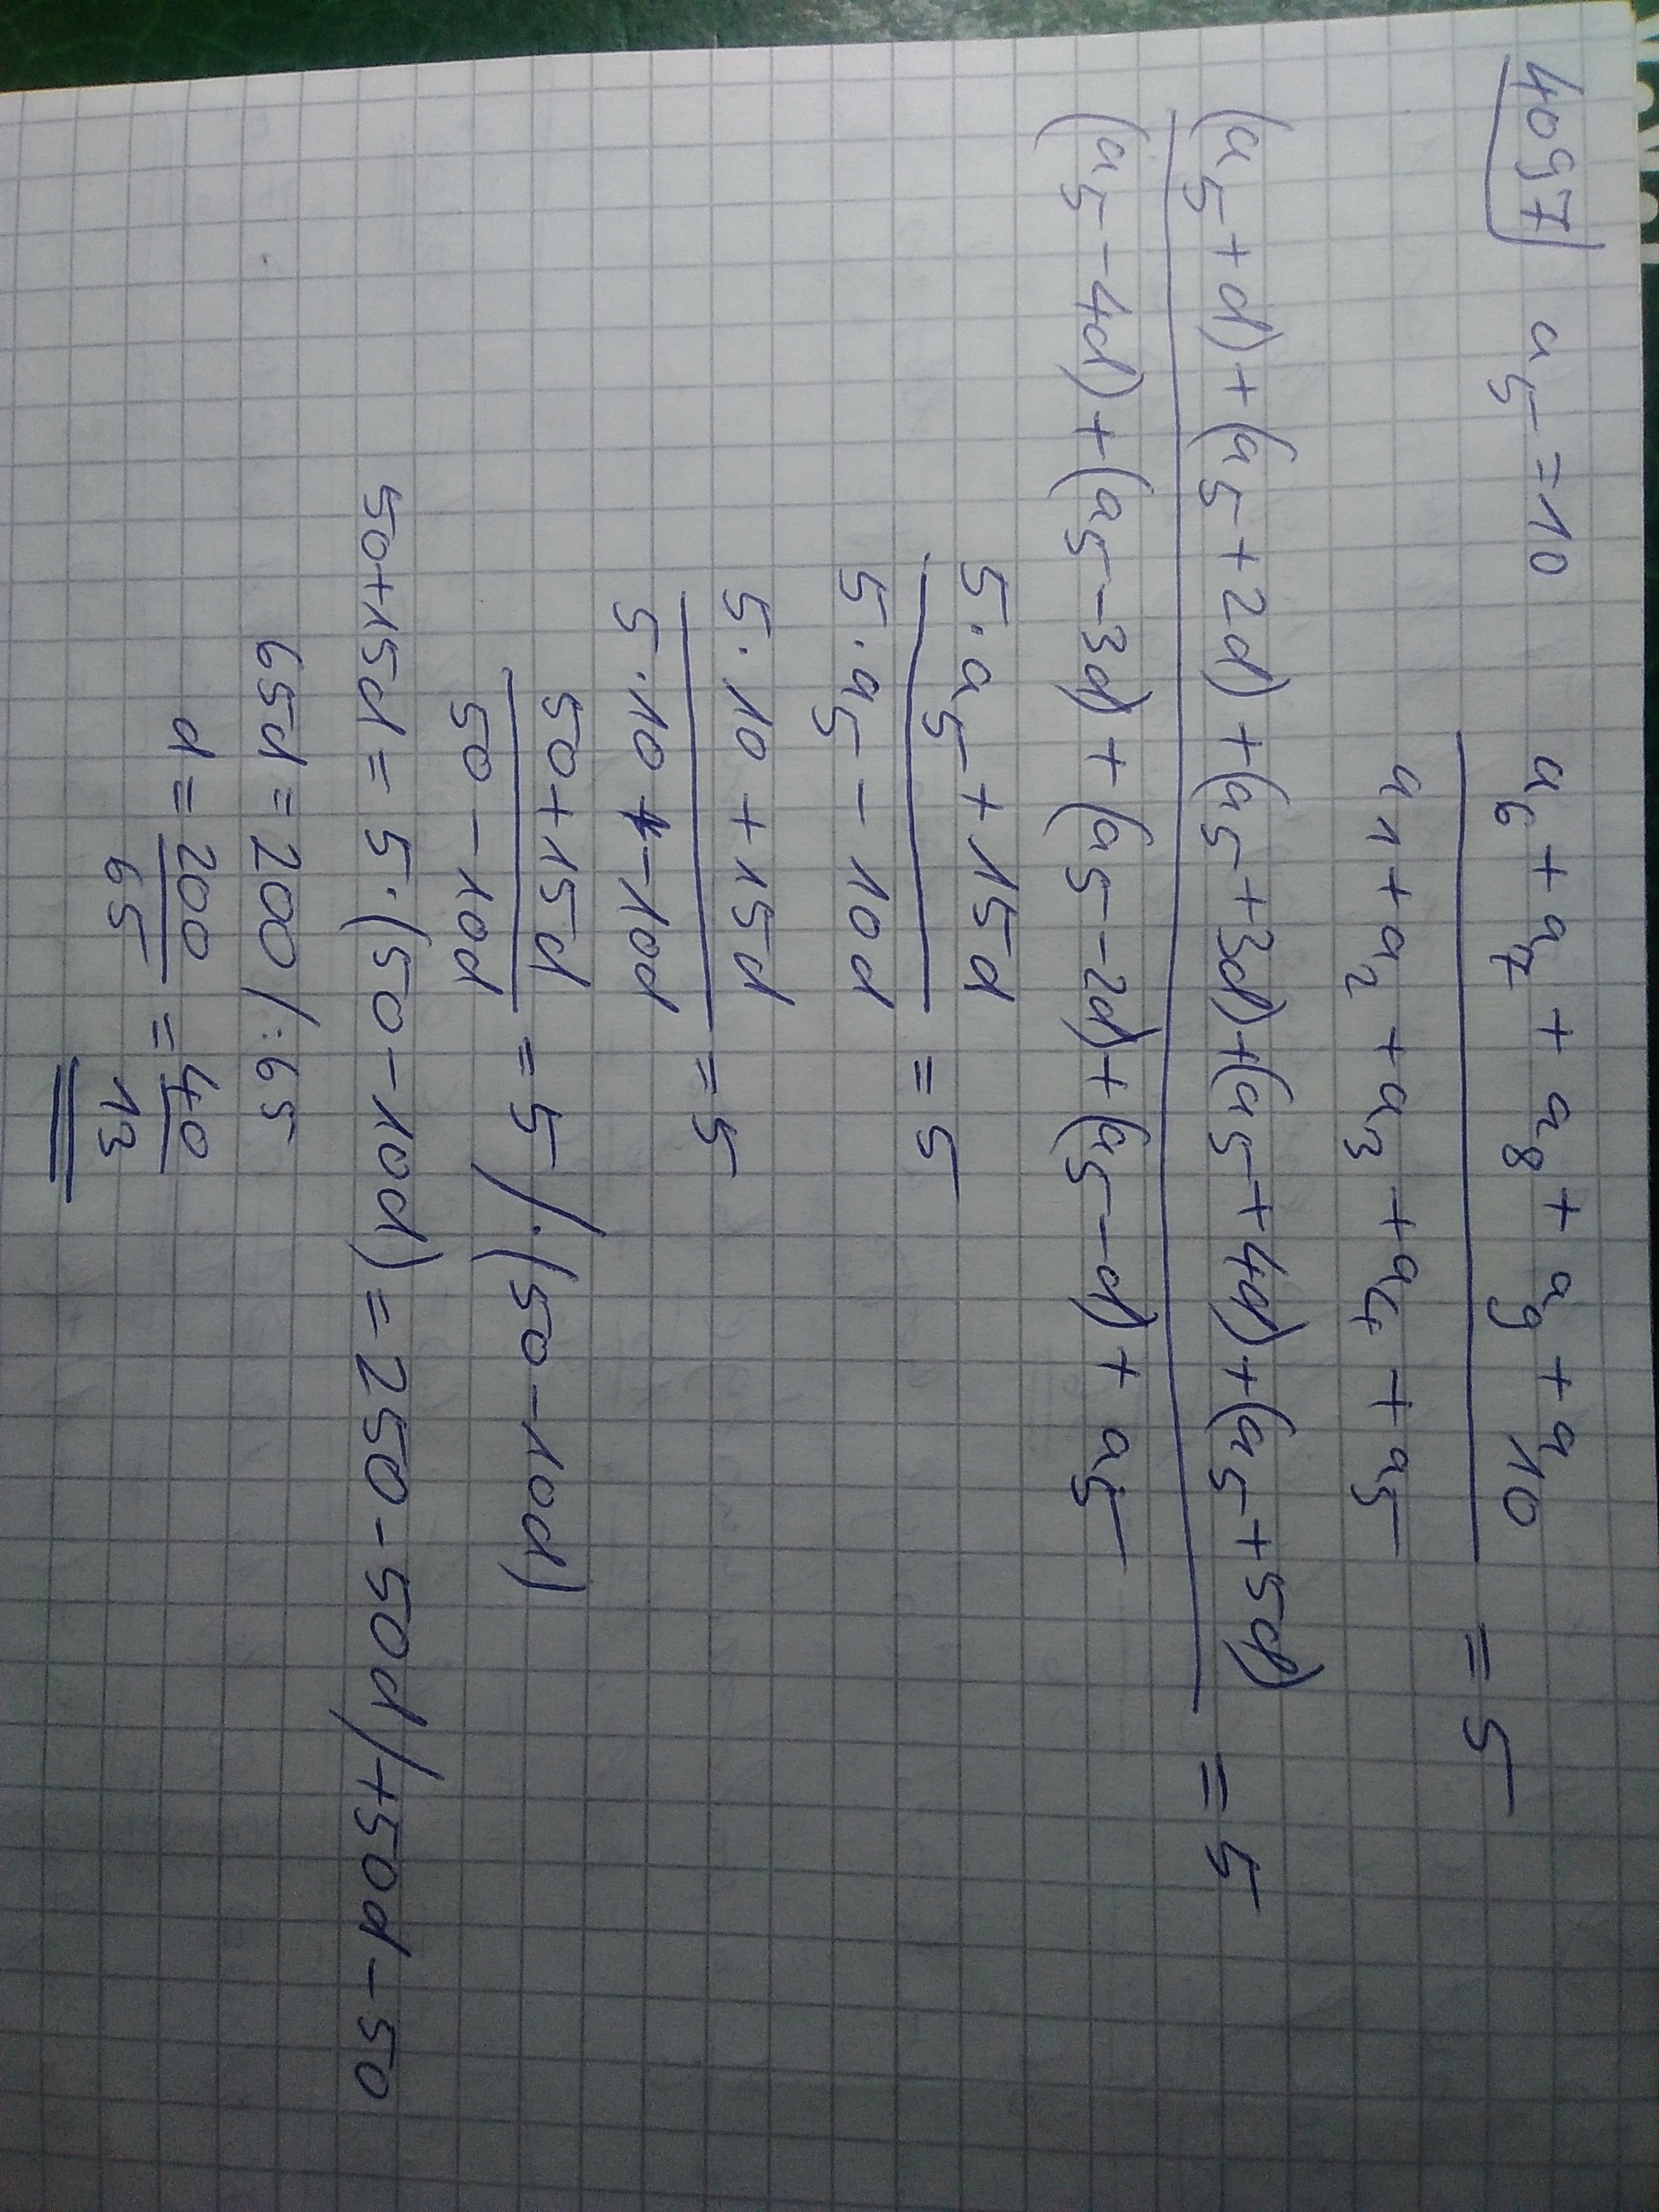 4097 a₅ = 10
a₆ + a₇ + a₈ + a₉ + a₁₀
a₁ + a₂ + a₃ + a₄ + a₅
= 5
(a₅ + d) + (a₅ + 2d) + (a₅ + 3d) + (a₅ + 4d) + (a₅ + 5d)
(a₅ - 4d) + (a₅ - 3d) + (a₅ - 2d) + (a₅ - d) + a₅
= 5
5 · a₅ + 15d
5 · a₅ - 10d
= 5
5 · 10 + 15d
5 · 10 - 10d
= 5
50 + 15d
50 - 10d
= 5 / · (50 - 10d)
50 + 15d = 5 · (50 - 10d) = 250 - 50d / + 50d - 50
65d = 200 / : 65
d = 200/65 = 40/13